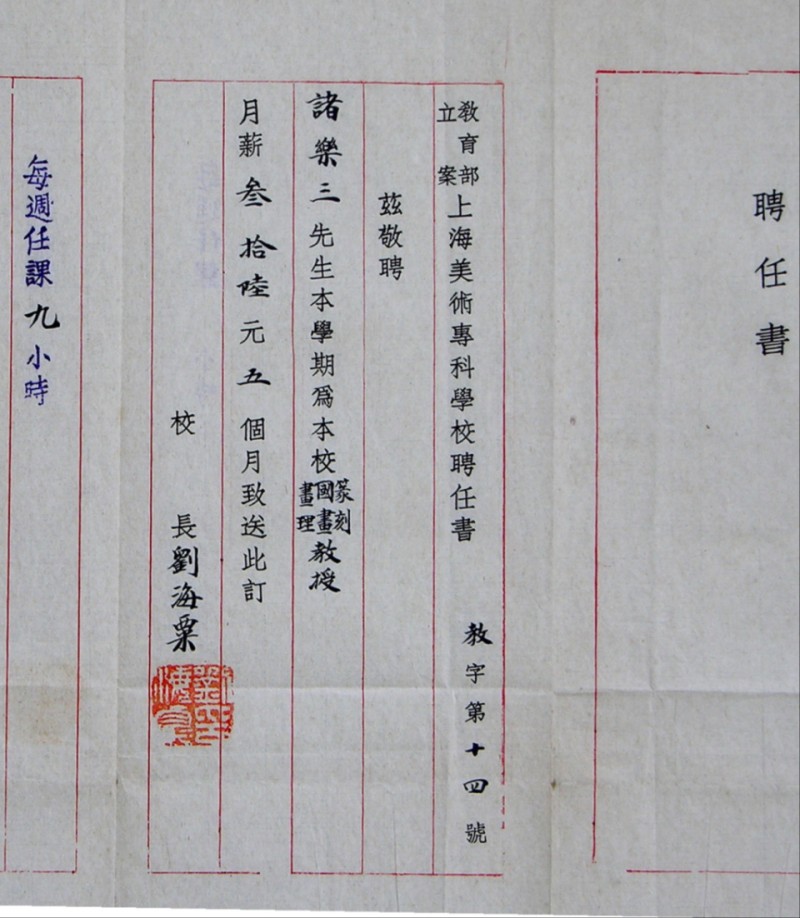 聘任書
教育部立案上海美術專科學校聘任書 教字第十四號
茲敬聘
諸樂三先生本學期爲本校篆刻國畫畫理教授
月薪叁拾陸元五個月致送此訂
校長劉海粟
每週任課九小時